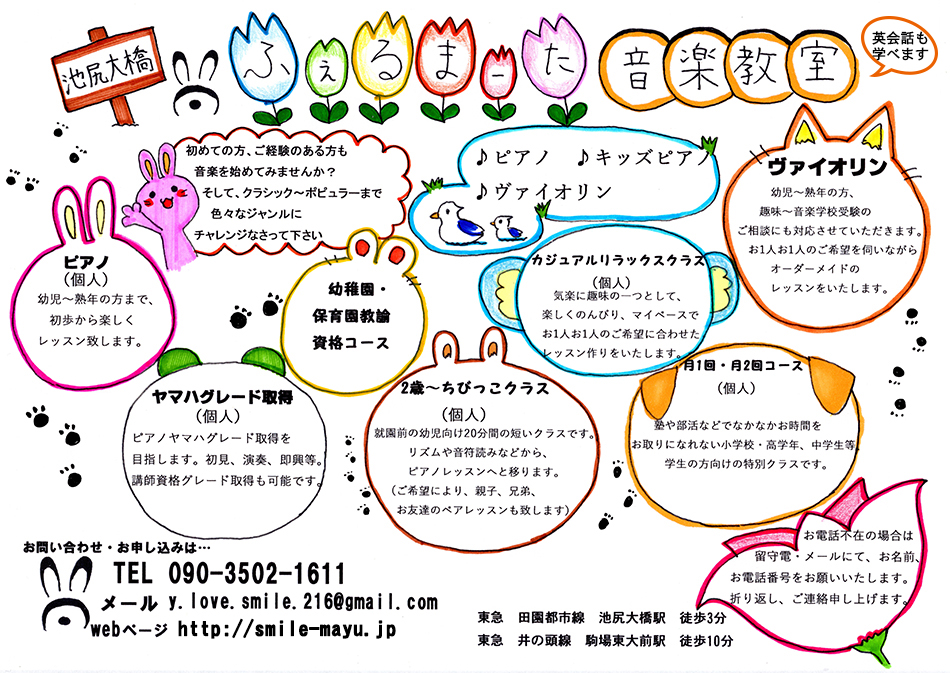 池尻大橋
ふぇるまーた
音楽教室
英会話も
学べます
初めての方、ご経験のある方も
音楽を始めてみませんか?
そして、クラシック〜ポピュラーまで
色々なジャンルに
チャレンジなさって下さい
♪ピアノ ♪キッズピアノ
♪ヴァイオリン
ヴァイオリン
幼児〜熟年の方、
趣味〜音楽学校受験の
ご相談にも対応させていただきます。
お1人お1人のご希望を伺いながら
オーダーメイドの
レッスンをいたします。
ピアノ
(個人)
幼児〜熟年の方まで、
初歩から楽しく
レッスン致します。
幼稚園・
保育園教諭
資格コース
カジュアルリラックスクラス
(個人)
気楽に趣味の一つとして、
楽しくのんびり、マイペースで
お1人お1人のご希望に合わせた
レッスン作りをいたします。
ヤマハグレード取得
(個人)
ピアノヤマハグレード取得を
目指します。初見、演奏、即興等。
講師資格グレード取得も可能です。
2歳〜ちびっこクラス
(個人)
就園前の幼児向け20分間の短いクラスです。
リズムや音符読みなどから、
ピアノレッスンへと移ります。
(ご希望により、親子、兄弟、
お友達のペアレッスンも致します)
月1回・月2回コース
(個人)
塾や部活などでなかなかお時間を
お取りになれない小学校・高学年、中学生等
学生の方向けの特別クラスです。
お電話不在の場合は
留守電・メールにて、お名前、
お電話番号をお願いいたします。
折り返し、ご連絡申し上げます。
お問い合わせ・お申し込みは…
TEL 090-3502-1611
メール y.love.smile.216@gmail.com
webページ http://smile-mayu.jp
東急 田園都市線 池尻大橋駅 徒歩3分
東急 井の頭線 駒場東大前駅 徒歩10分